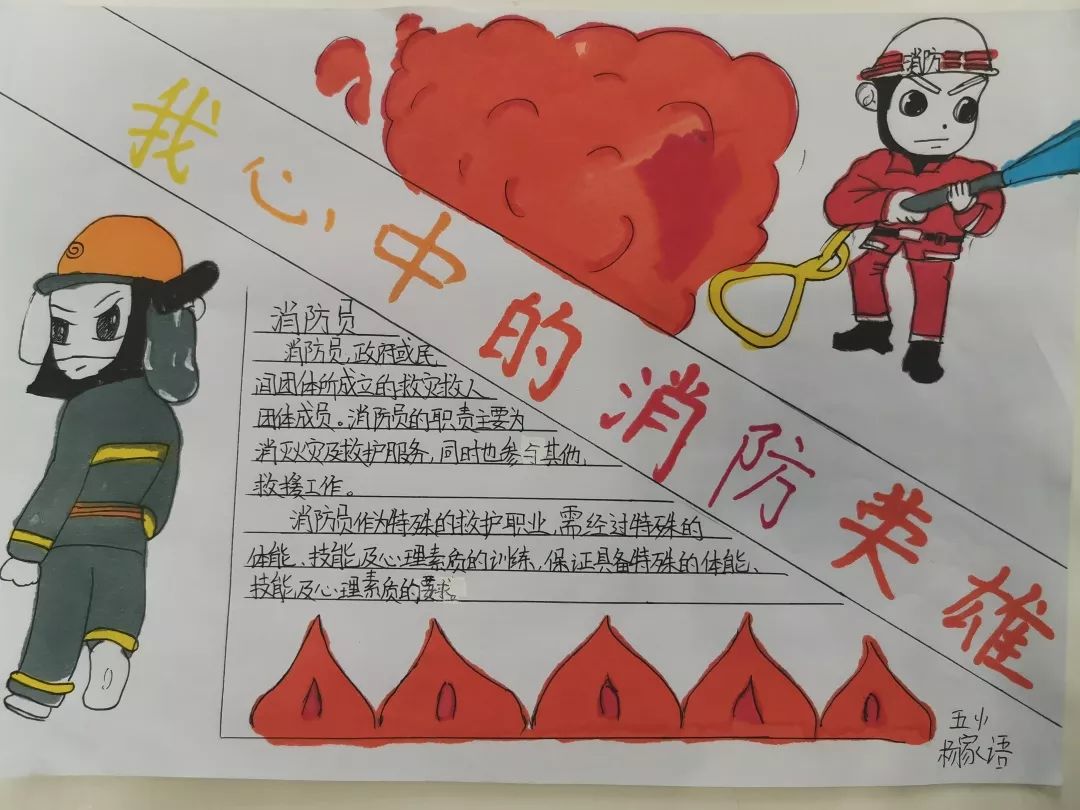 我心中的消防英雄
消防
消防员
消防员,政府或民
间团体所成立的救灾救人
团体成员。消防员的职责主要为
消灭火灾及救护服务,同时也参与其他
救援工作。
消防员作为特殊的救护职业,需经过特殊的
体能、技能及心理素质的训练,保证具备特殊的体能、
技能及心理素质的要求。
五小
杨家语